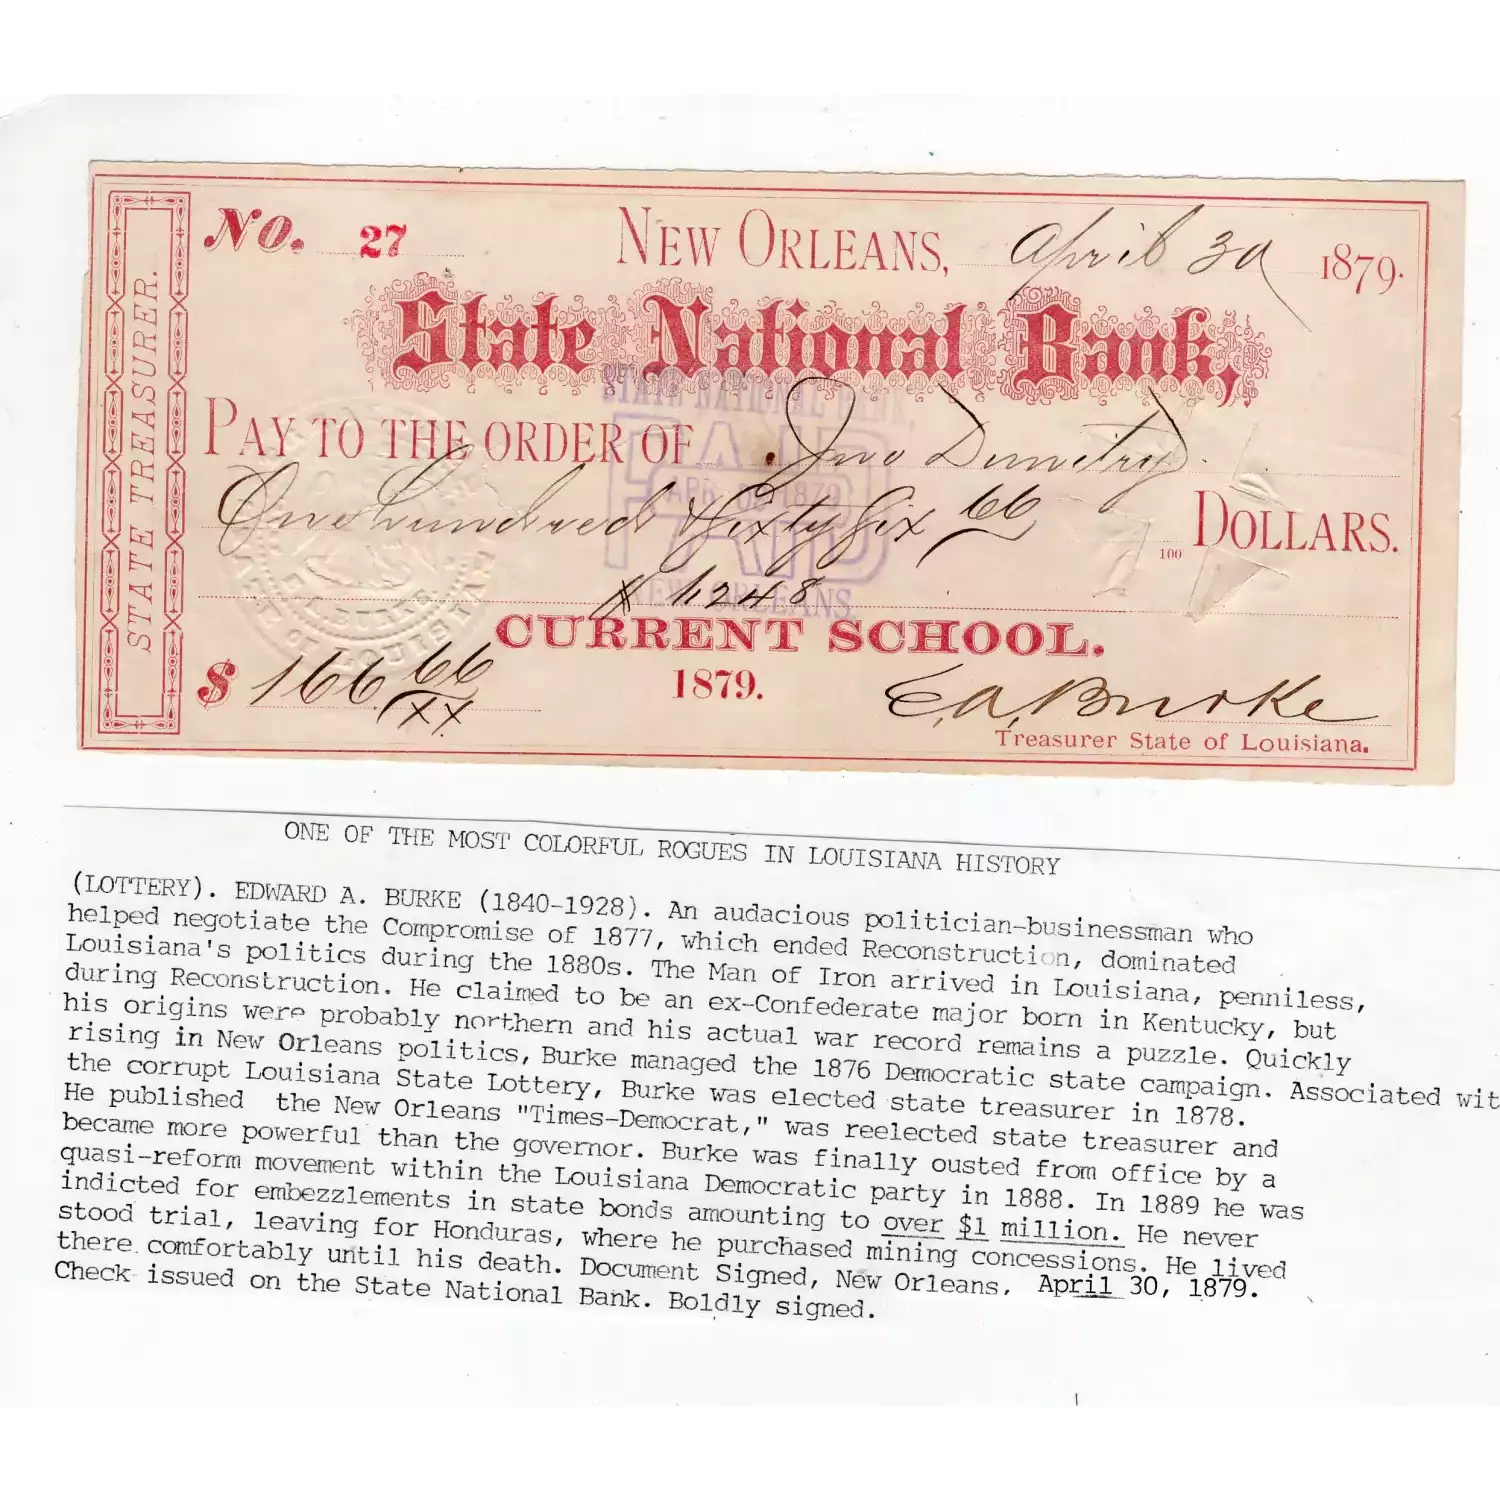 STATE TREASURER.
No. 27 NEW ORLEANS, April 30 1879.
State National Bank,
PAY TO THE ORDER OF Jno Dimitry
One hundred & Sixty Six 66
100 DOLLARS.
STATE NATIONAL BANK,
PAID
1879
PAID
NEW ORLEANS.
STATE OF LOUISIANA
X 1,248
CURRENT SCHOOL.
$ 166 66/XX 1879. E.A. Burke
Treasurer State of Louisiana.
ONE OF THE MOST COLORFUL ROGUES IN LOUISIANA HISTORY
(LOTTERY). EDWARD A. BURKE (1840-1928). An audacious politician-businessman who
helped negotiate the Compromise of 1877, which ended Reconstruction, dominated
Louisiana's politics during the 1880s. The Man of Iron arrived in Louisiana, penniless,
during Reconstruction. He claimed to be an ex-Confederate major born in Kentucky, but
his origins were probably northern and his actual war record remains a puzzle. Quickly
rising in New Orleans politics, Burke managed the 1876 Democratic state campaign. Associated wit
the corrupt Louisiana State Lottery, Burke was elected state treasurer in 1878.
He published the New Orleans "Times-Democrat," was reelected state treasurer and
became more powerful than the governor. Burke was finally ousted from office by a
quasi-reform movement within the Louisiana Democratic party in 1888. In 1889 he was
indicted for embezzlements in state bonds amounting to over $1 million. He never
stood trial, leaving for Honduras, where he purchased mining concessions. He lived
there comfortably until his death. Document Signed, New Orleans, April 30, 1879.
Check issued on the State National Bank. Boldly signed.